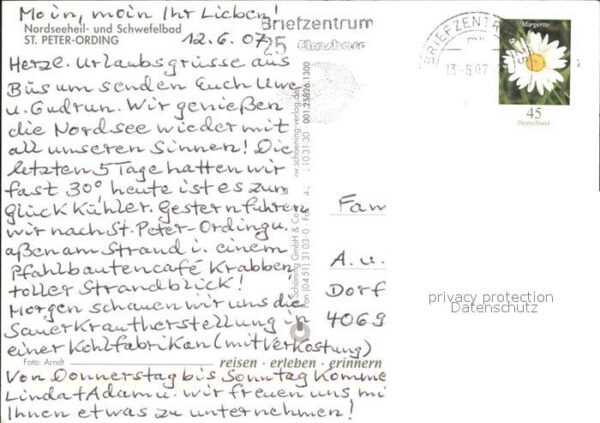 Moin, moin Ihr Lieben!
Nordseeheil- und Schwefelbad
ST. PETER-ORDING
12.6.07
Herzl. Urlaubsgrüsse aus
Büsum senden Euch Uwe
u. Gudrun. Wir genießen
die Nordsee wieder mit
all unseren Sinnen! Die
letzten 5 Tage hatten wir
fast 30° heute ist es zum
Glück Kühler. Gestern fuhren
wir nach St. Peter-Ording u.
aßen am Strand i. einem
Pfahlbautencafé Krabben
toller Strandblick!
Morgen schauen wir uns die
Sauerkrautherstellung in
einer Kohlfabrik an (mit Verkostung)
Foto: Arndt
reisen · erleben · erinnern
Von Donnerstag bis Sonntag Komme
Linda + Adam u. wir freuen uns mi
Ihnen etwas zu unternehmen!
Briefzentrum
25 Elmshorn
BRIEFZENTR
13.-6.07
Margerite
45
Deutschland
Schöning GmbH & Co.
Fon (04 51) 3 10 3-0
10 31 30 001.25826.1300
Fam
A. u.
Dorf
4069
privacy protection
Datenschutz